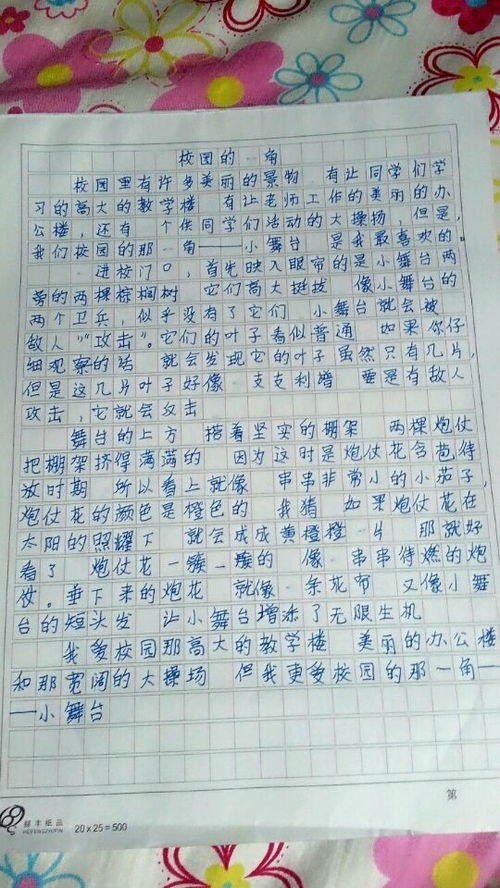 校园的一角
校园里有许多美丽的景物 有让同学们学
习的高大的教学楼 有让老师工作的美丽的办
公楼，还有 个供同学们活动的大操场，但是，
我们校园的那一角——小舞台 是我最喜欢的。
进校门口，首先映入眼帘的是小舞台两
旁的两棵棕榈树 它们高大挺拔 像小舞台的
两个卫兵，似乎没有了它们 小舞台就会被
敌人“攻击”。它们的叶子看似普通 如果你仔
细观察的话 就会发现它的叶子虽然只有几片，
但是这几片叶子好像 支支利箭 要是有敌人
攻击，它就会反击
舞台的上方 搭着坚实的棚架 两棵炮仗
把棚架挤得满满的 因为这时是炮仗花含苞待
放时期 所以看上就像 串串非常小的小茄子，
炮仗花的颜色是橙色的 我猜 如果炮仗花在
太阳的照耀下 就会成成黄橙橙一片 那就好
看了 炮仗花一簇一簇的 像一串串待燃的炮
仗。垂下来的炮花 就像一条花布 又像小舞
台的短头发 让小舞台增添了无限生机
我爱校园那高大的教学楼 美丽的办公楼
和那宽阔的大操场 但我更爱校园的那一角—
—小舞台
第
20 x 25 = 500